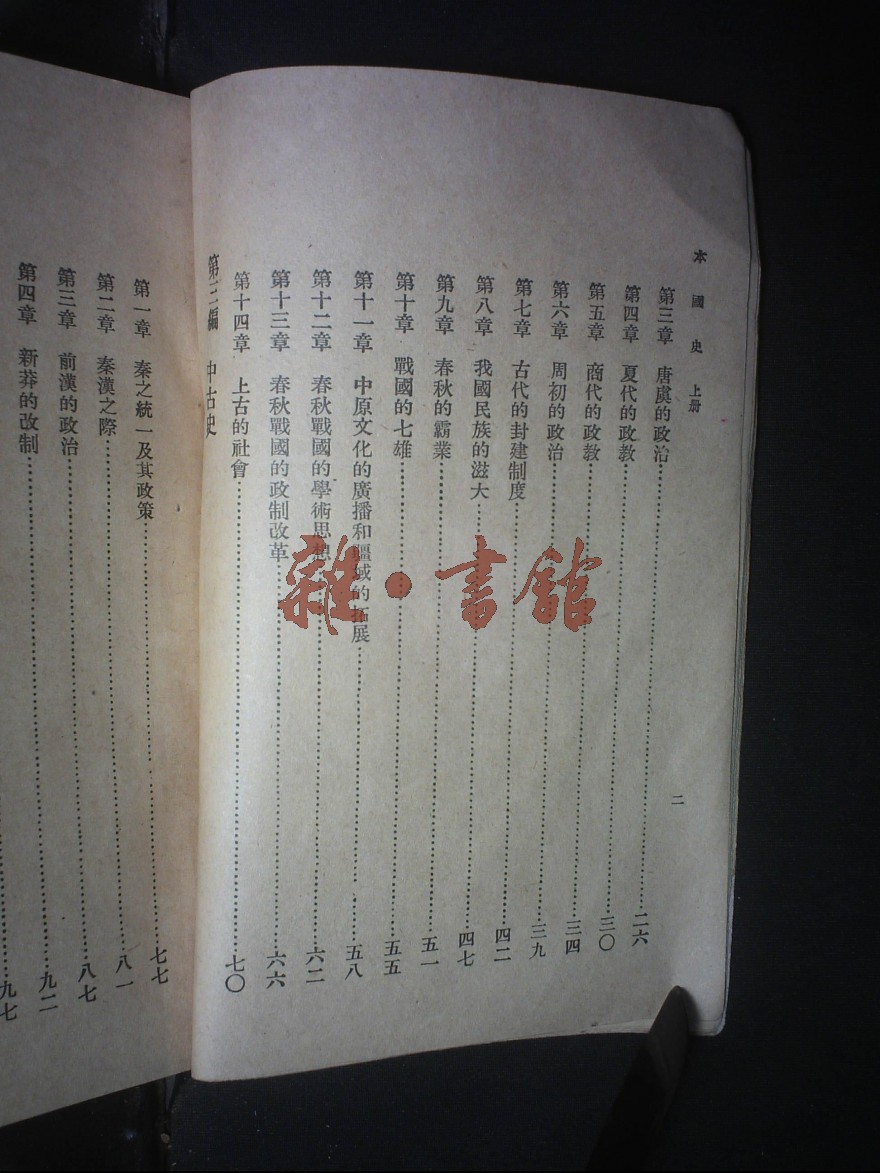 本國史 上册
二
第三章 唐虞的政治 二六
第四章 夏代的政教 三〇
第五章 商代的政教 三四
第六章 周初的政治 三九
第七章 古代的封建制度 四二
第八章 我國民族的滋大 四七
第九章 春秋的霸業 五一
第十章 戰國的七雄 五五
第十一章 中原文化的廣播和疆域的拓展 五八
第十二章 春秋戰國的學術思想 六二
第十三章 春秋戰國的政制改革 六六
第十四章 上古的社會 七〇
第三編 中古史
第一章 秦之統一及其政策 七七
第二章 秦漢之際 八一
第三章 前漢的政治 八七
第四章 新莽的改制 九二
九七
雜·書館